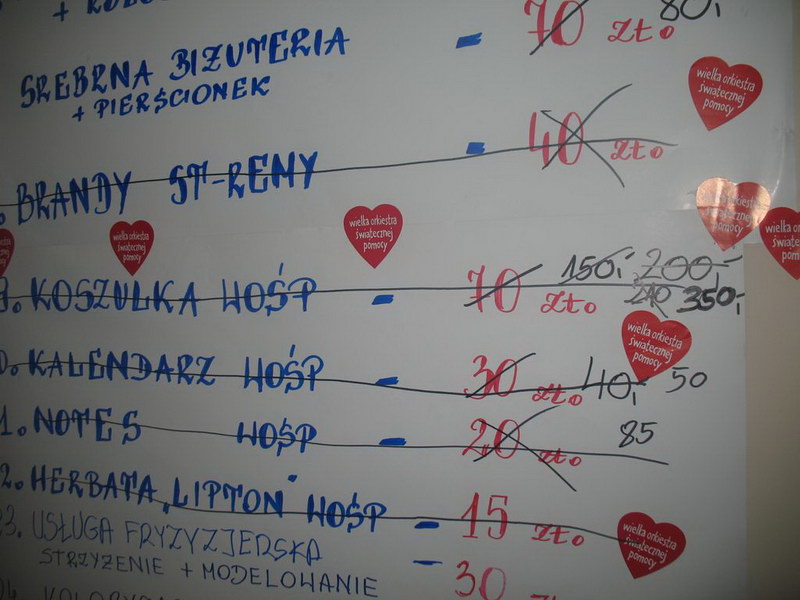 70 zło 80,-
SREBRNA BIŻUTERIA
+ PIERŚCIONEK
wielka orkiestra
świątecznej
pomocy
BRANDY ST-REMY - 40 zło
wielka orkiestra
świątecznej
pomocy
wielka orkiestra
świątecznej
pomocy
KOSZULKA WOŚP - 70 zło 150,- 200,- 210 350,-
wielka orkiestra
świątecznej
pomocy
KALENDARZ WOŚP - 30 zło 40,- 50
1. NOTES WOŚP - 20 zło 85
2. HERBATA LIPTON WOŚP - 15 zło
wielka orkiestra
świątecznej
pomocy
3. USŁUGA FRYZYZJERSKA
STRZYŻENIE + MODELOWANIE - 30